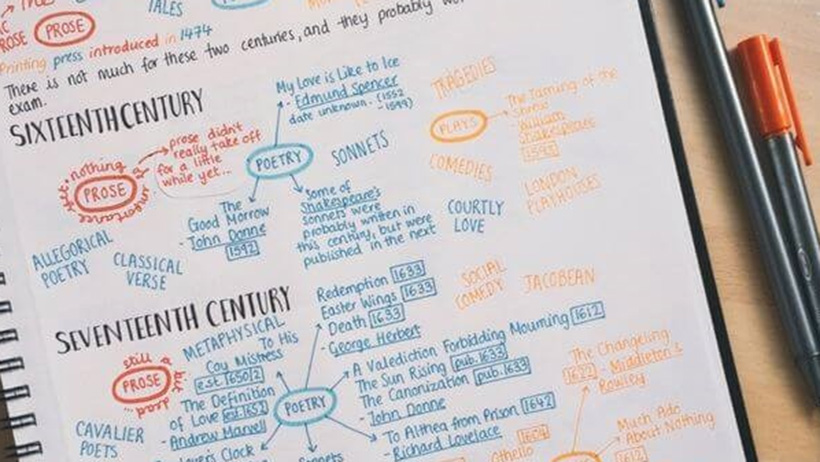 TALES
PROSE
ROSE
Printing press introduced in 1474
There is not much for these two centuries, and they probably
exam.
SIXTEENTH CENTURY
nothing
PROSE
importance
prose didn't
really take off
for a little
while yet...
My Love is Like to Ice
- Edmund Spencer
date unknown. (1552
- 1599)
POETRY
SONNETS
The
Good Morrow
- John Donne
1592
Some of
Shakespeare's
sonnets were
probably written in
this century, but were
published in the next
COURTLY
LOVE
ALLEGORICAL
POETRY
CLASSICAL
VERSE
TRAGEDIES
PLAYS
The Taming of the
Shrew
- William
Shakespeare
COMEDIES
LONDON
PLAYHOUSES
SEVENTEENTH CENTURY
still a
PROSE
METAPHYSICAL
To His
Coy Mistress
est. 1650/2
The Definition
of Love est. 1652
- Andrew Marvell
CAVALIER
POETS
POETRY
Redemption 1633
Easter Wings 1633
Death 1633
- George Herbert
A Valediction Forbidding Mourning 1612
The Sun Rising pub. 1633
The Canonization pub. 1633
- John Donne
To Althea from Prison 1642
- Richard Lovelace
Clock
Sonnets
SOCIAL
COMEDY
JACOBEAN
The Changeling
1622 - Middleton &
Rowley
Othello 1604
Much Ado
About Nothing
1612